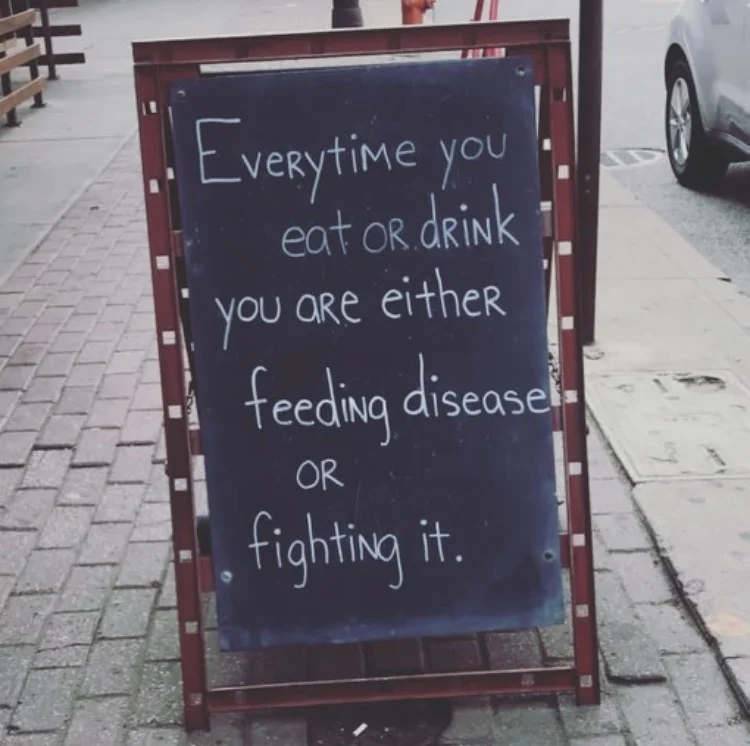 Everytime you
eat or drink
you are either
feeding disease
or
fighting it.